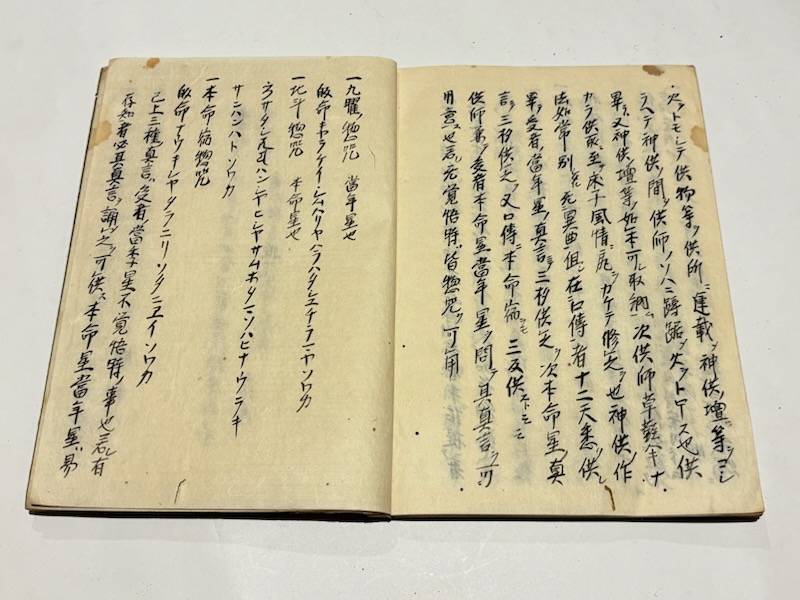 火ヲトモシテ供物等ヲ供所ニ運載シ神供ノ壇等ヲコシ
ラヘテ神供ノ間ハ供師ノソハニ蹲踞シ火ヲトロース也供
畢ヲ又神供ノ壇等如本可取納ム次供師草鞋ヲキナ
カラ供 至 床十風情ニ尻ヲカケテ修之也神供ノ作
法如常別 无異曲但シ在口傳者十二天悉ク供シ
畢テ受者當年星ノ真言ニテ三杓供之ヲ次本命星ノ真
言ニテ三杓供之ヲ又口傳ニ本命 ヲモ二反供
供師兼テ受者本命星當年星ヲ問テ其真言ヲ可
用意ス也若シ无覚悟時ハ皆惣咒ヲ可用
一九曜ノ惣咒 當年星也
皈命 ケイシムハリヤハラハタ チラニヤソワカ
一北斗惣咒 本命星也
サタ ハンシヤヒシヤサムホタ ソハヒナウラキ
サニハンハトソワカ
一本命 惣咒
皈命 シヤタラニリソタニヱイソワカ
已上三種真言ハ受者當年星不覚悟時ノ事也若シ有
存知者必其真言ヲ誦シテ之ヲ可供ス本命星當年星ハ易